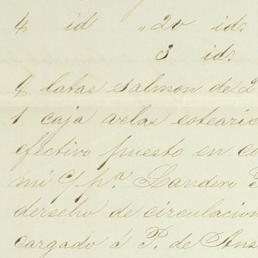 4 id „ 20 id:
3 id:
4 latas salmon de 2
1 caja velas estearic
efectivo puesto en co
mi c/ pa. Landero
derecho de circulacion
cargado á P. de Ans